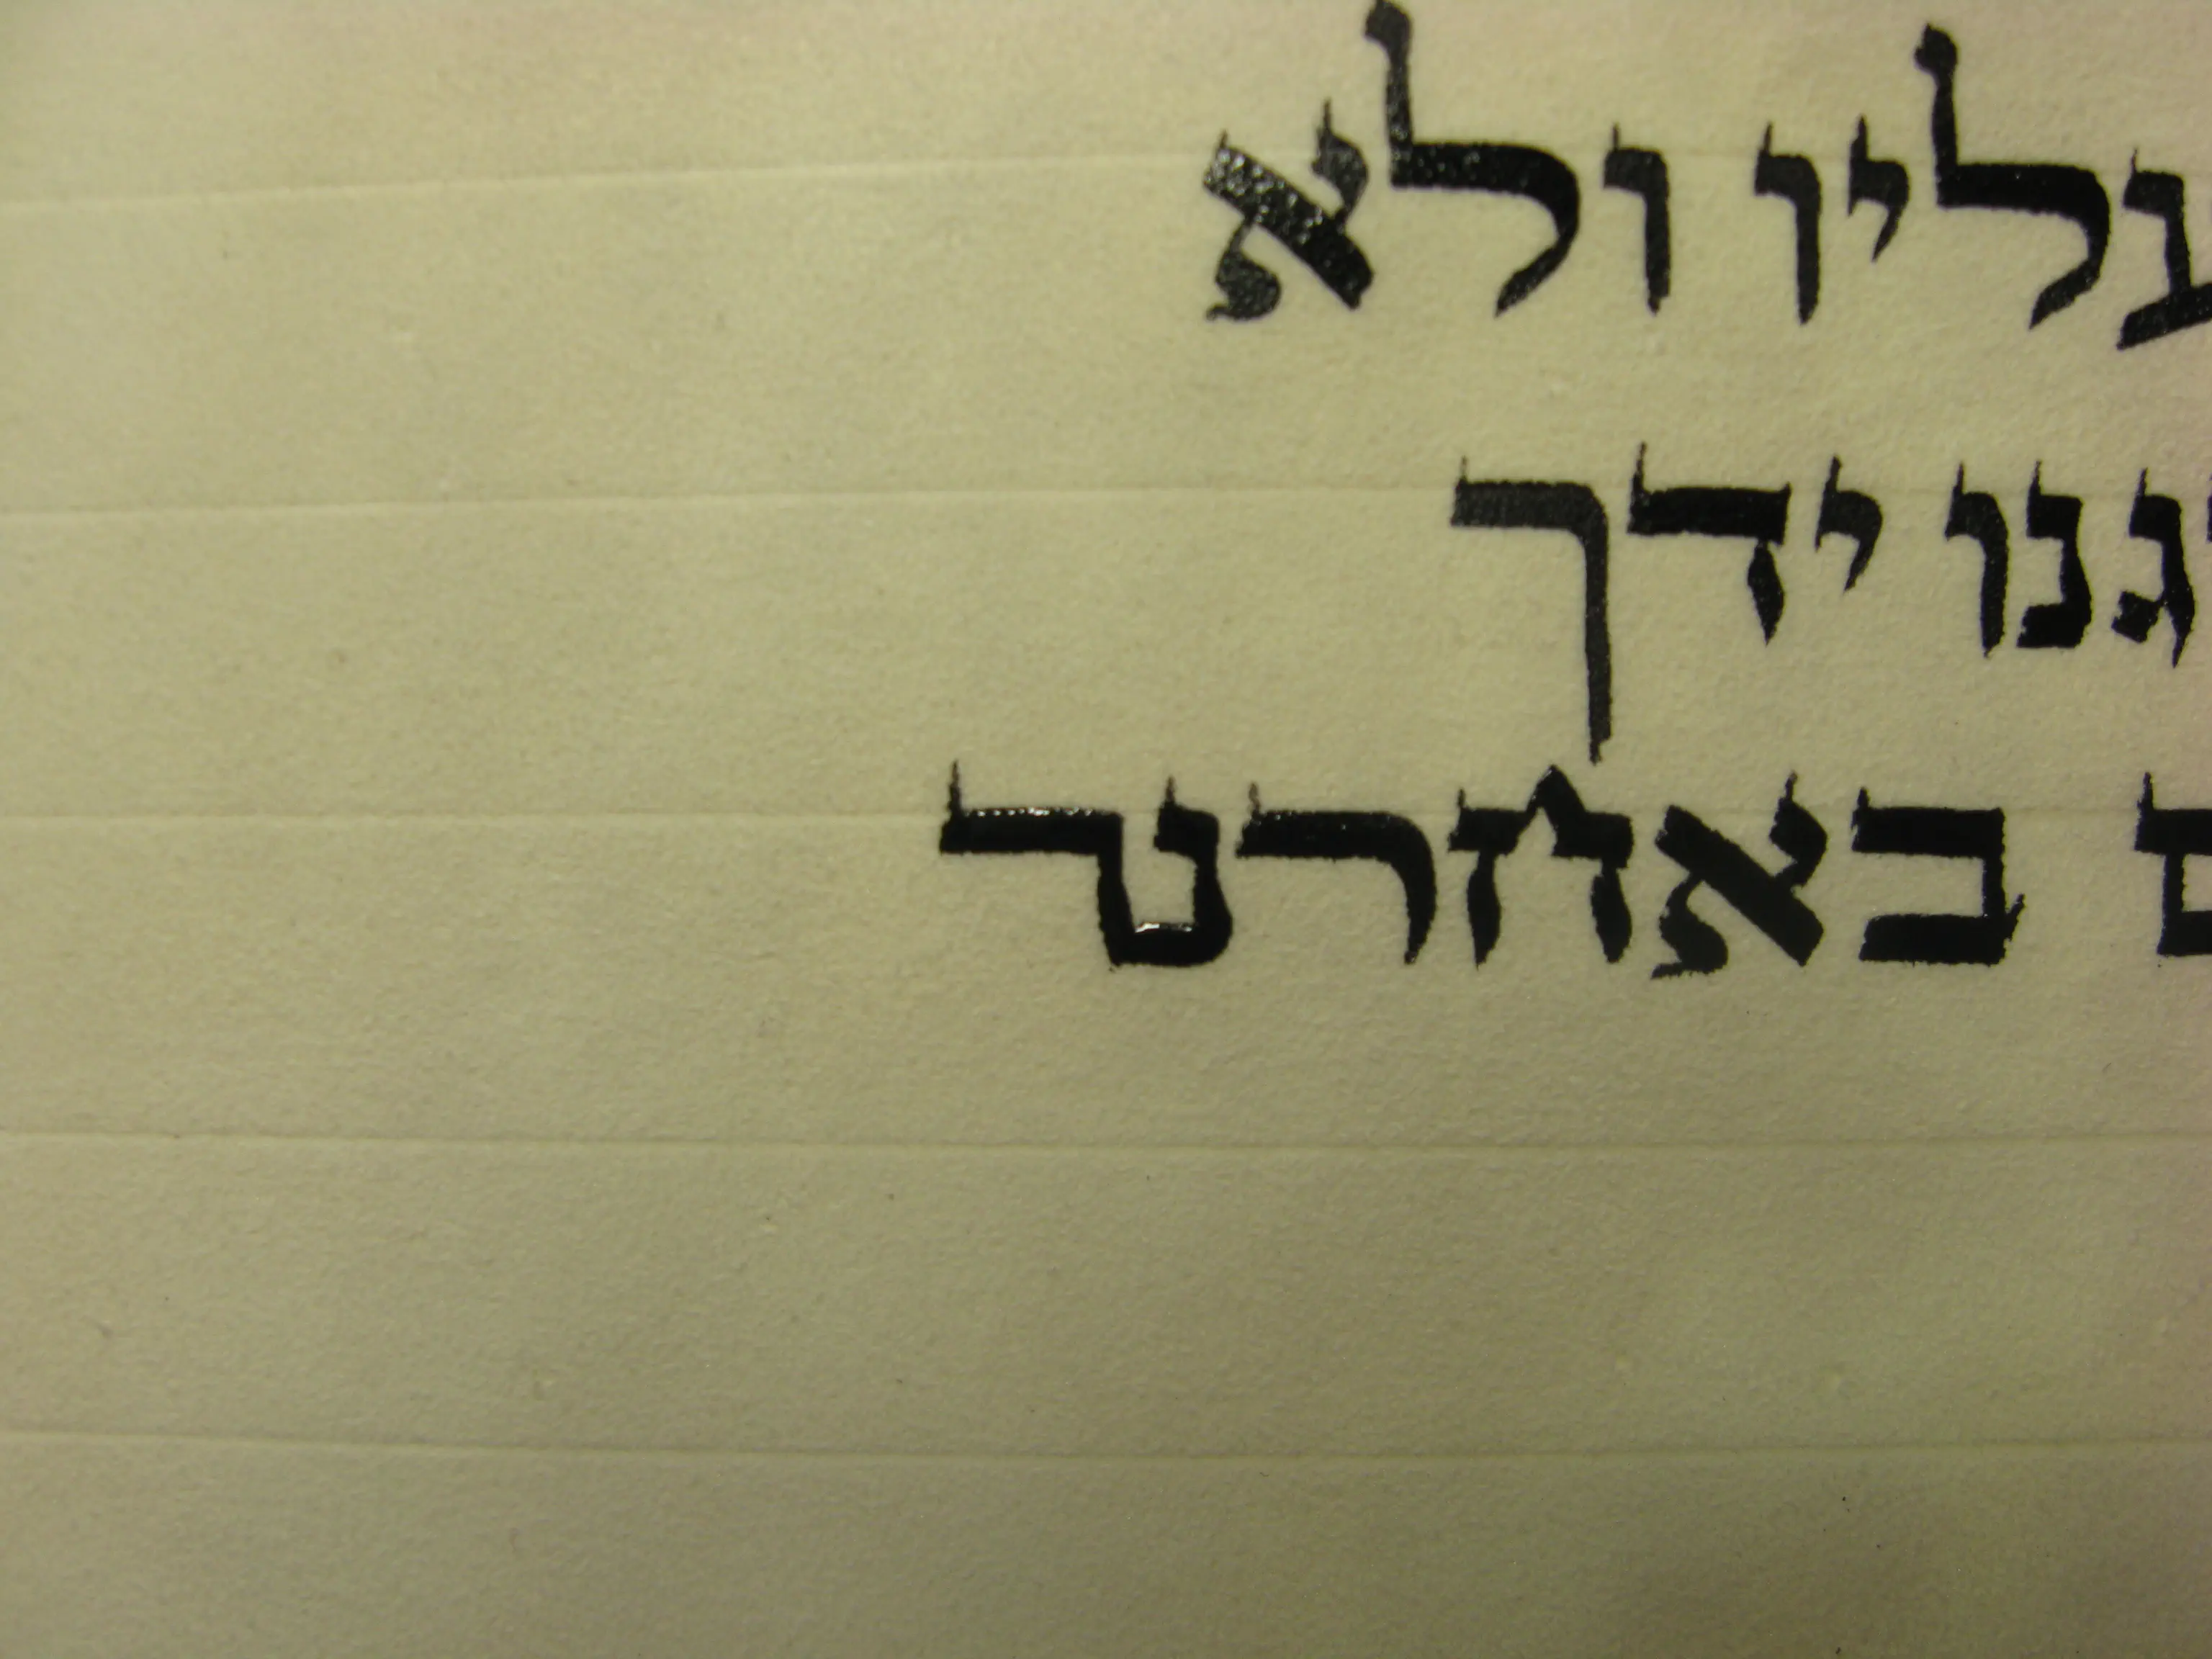 עליו ולא
גנו ידך
ם באחרנ